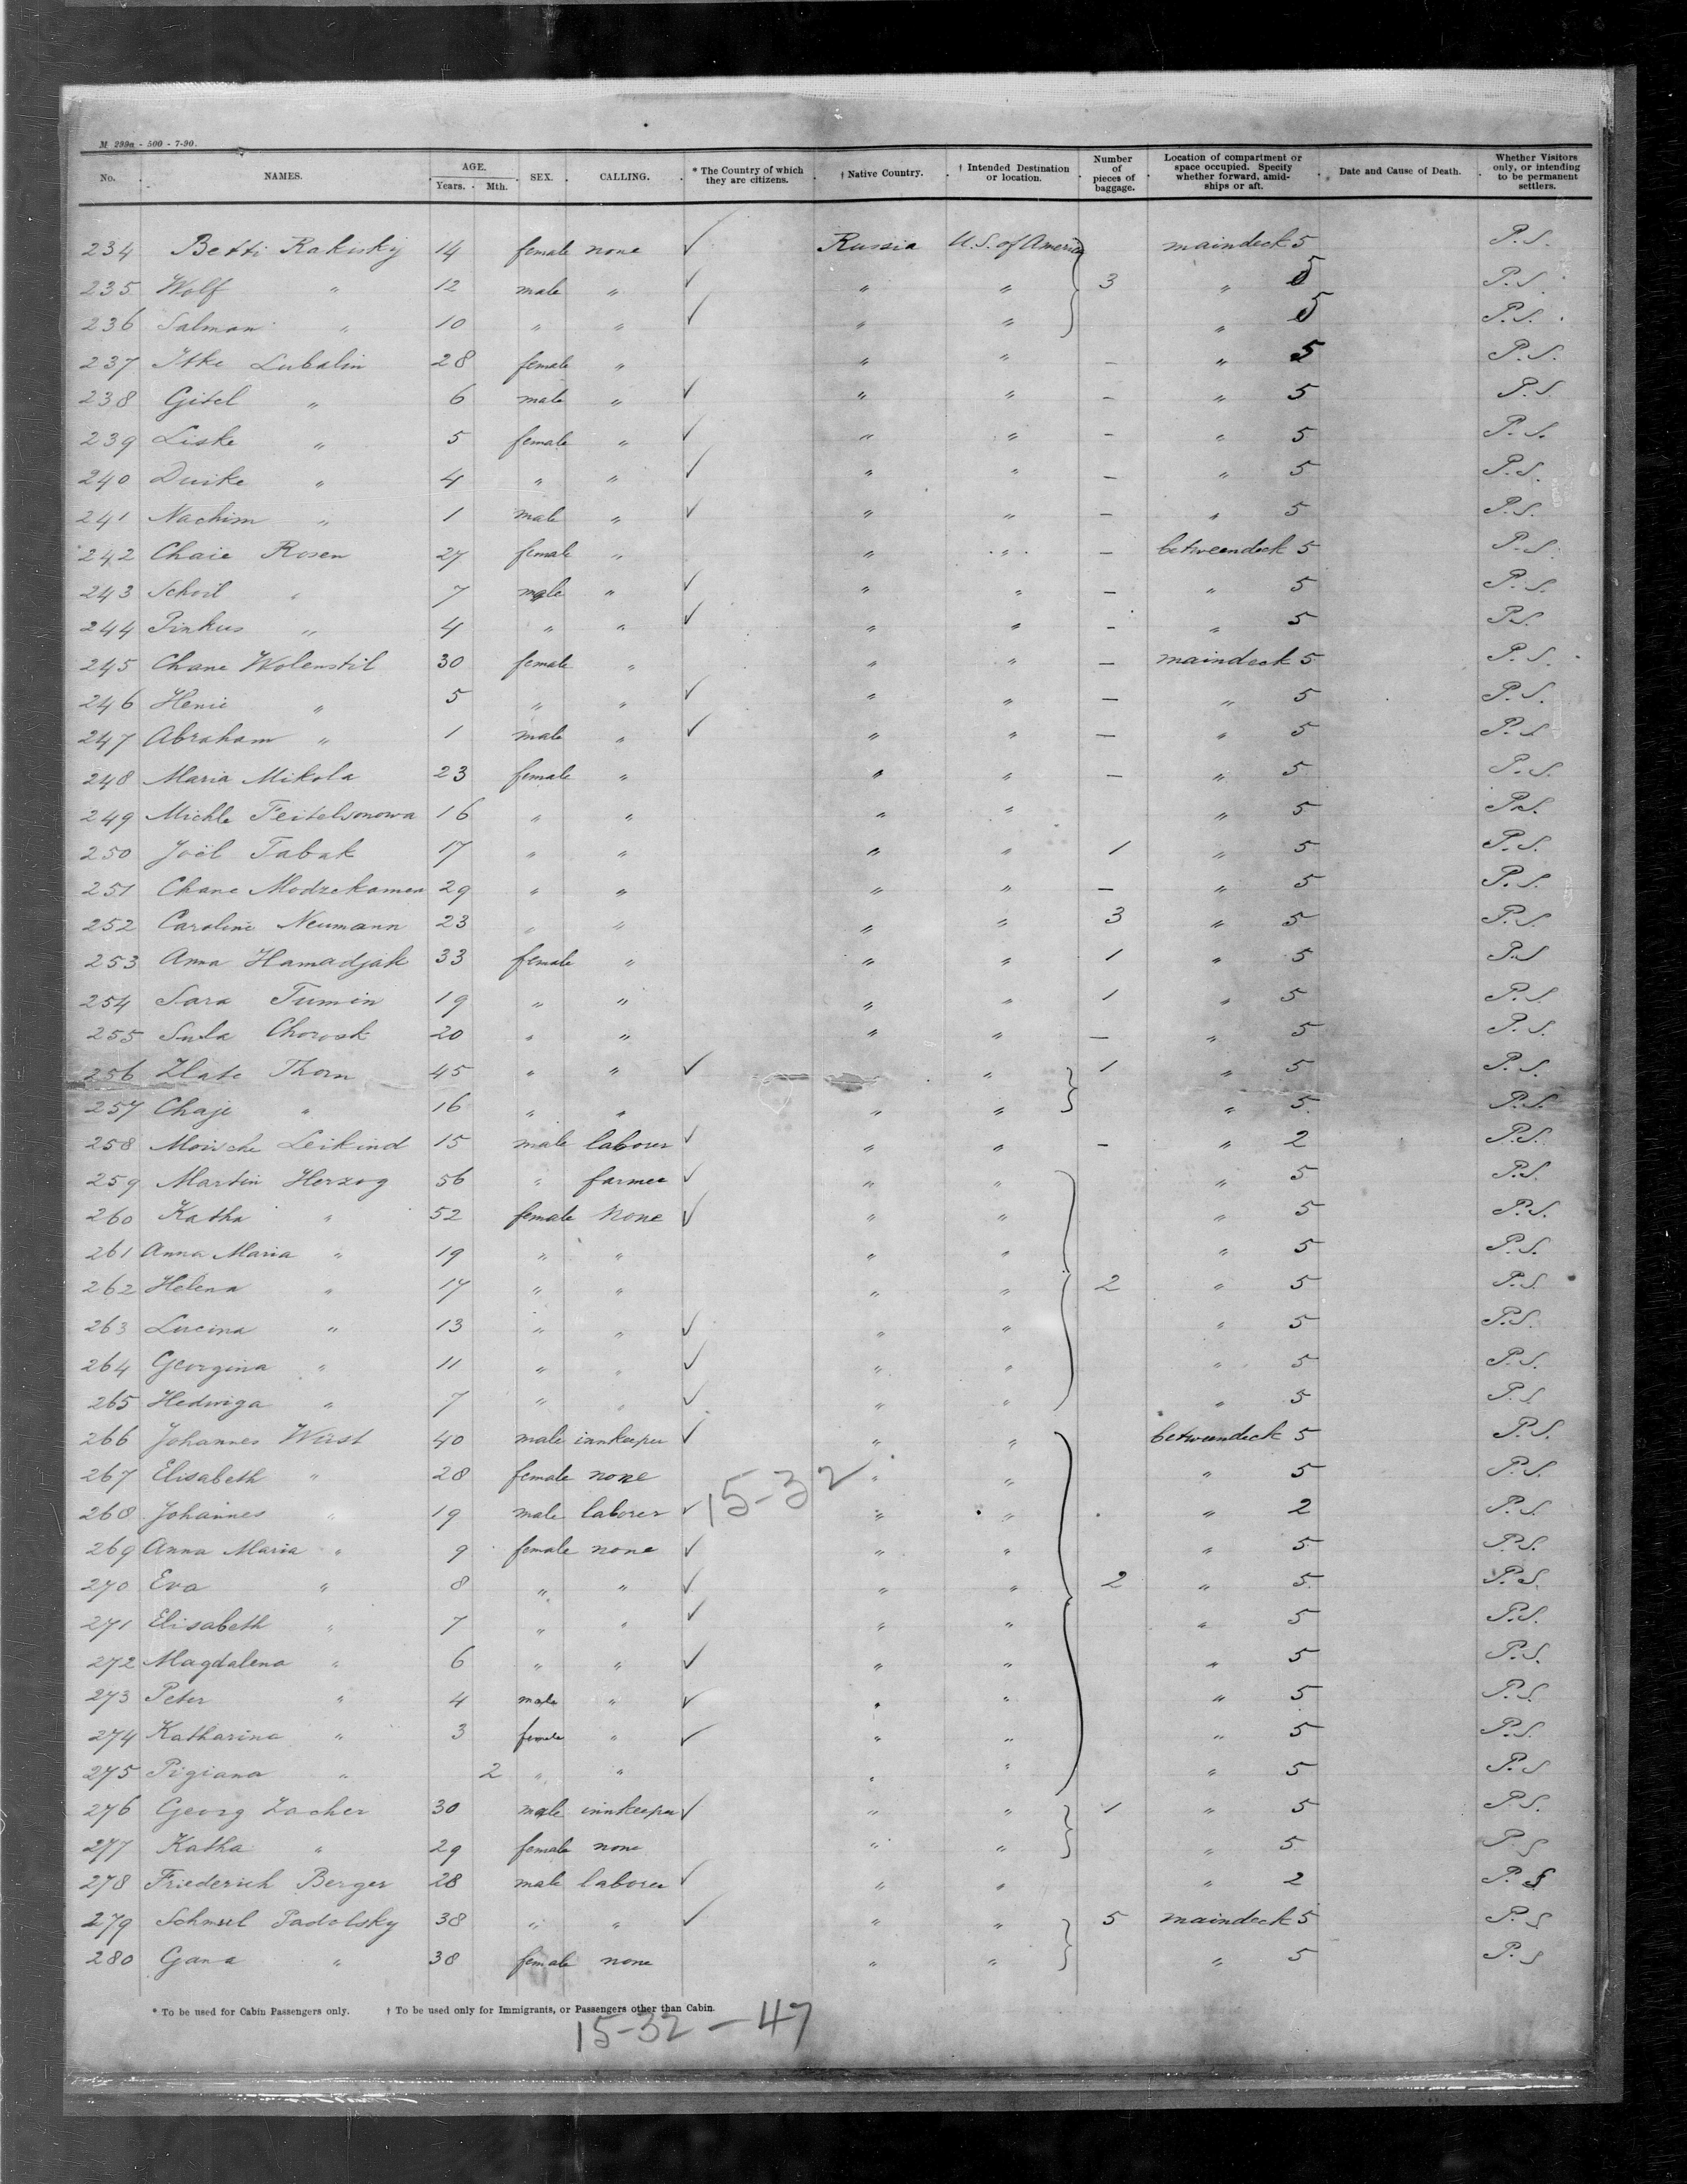 M 299a - 500 - 7-90.
No. NAMES. AGE. Years. Mth. SEX. CALLING. * The Country of which they are citizens. † Native Country. † Intended Destination or location. Number of pieces of baggage. Location of compartment or space occupied. Specify whether forward, amidships or aft. Date and Cause of Death. Whether Visitors only, or intending to be permanent settlers.
234 Betti Rakisky 14 female none ✓ Russia U.S. of America maindeck 5 P.S.
235 Wolf " 12 male " ✓ " " 3 " 5 P.S.
236 Salman " 10 " " ✓ " " " 5 P.S.
237 Itke Lubalin 28 female " " " – " 5 P.S.
238 Gitel " 6 male " ✓ " " – " 5 P.S.
239 Liske " 5 female " ✓ " " – " 5 P.S.
240 Dwike " 4 " " ✓ " " – " 5 P.S.
241 Nachim " 1 male " ✓ " " – " 5 P.S.
242 Chaie Rosen 27 female " " " – betweendeck 5 P.S.
243 Schoil " 7 male " ✓ " " – " 5 P.S.
244 Pinkus " 4 " " ✓ " " – " 5 P.S.
245 Chane Wolenstil 30 female " " " – maindeck 5 P.S.
246 Henie " 5 " " ✓ " " – " 5 P.S.
247 Abraham " 1 male " ✓ " " – " 5 P.S.
248 Maria Mikola 23 female " " " – " 5 P.S.
249 Michle Feitelsonowa 16 " " " " " 5 P.S.
250 Joël Tabak 17 " " " " 1 " 5 P.S.
251 Chane Modzekamen 29 " " " " – " 5 P.S.
252 Caroline Neumann 23 " " " " 3 " 5 P.S.
253 Anna Hamadjak 33 female " " " 1 " 5 P.S.
254 Sara Tumin 19 " " " " 1 " 5 P.S.
255 Sula Chorosk 20 " " " " – " 5 P.S.
256 Zlate Thorn 45 " " ✓ " 1 " 5 P.S.
257 Chaje " 16 " " " " " 5 P.S.
258 Moische Leikind 15 male laborer ✓ " " – " 2 P.S.
259 Martin Herzog 56 " farmer ✓ " " " 5 P.S.
260 Katha " 52 female none ✓ " " " 5 P.S.
261 Anna Maria " 19 " " " " " 5 P.S.
262 Helena " 17 " " " " 2 " 5 P.S.
263 Lucina " 13 " " ✓ " " " 5 P.S.
264 Georgina " 11 " " ✓ " " " 5 P.S.
265 Hedwiga " 7 " " ✓ " " " 5 P.S.
266 Johannes Wüst 40 male innkeeper ✓ " " betweendeck 5 P.S.
267 Elisabeth " 28 female none 15-32 " " " 5 P.S.
268 Johannes " 19 male laborer ✓ " " " 2 P.S.
269 Anna Maria " 9 female none ✓ " " " 5 P.S.
270 Eva " 8 " " ✓ " " 2 " 5 P.S.
271 Elisabeth " 7 " " ✓ " " " 5 P.S.
272 Magdalena " 6 " " ✓ " " " 5 P.S.
273 Peter " 4 male " ✓ " " " 5 P.S.
274 Katharina " 3 female " ✓ " " " 5 P.S.
275 Pigiana " 2 " " " " " 5 P.S.
276 Georg Zacher 30 male innkeeper ✓ " " 1 " 5 P.S.
277 Katha " 29 female none " " " 5 P.S.
278 Friederich Berger 28 male laborer ✓ " " " 2 P.S.
279 Schmuel Padolsky 38 " " ✓ " " 5 maindeck 5 P.S.
280 Gana " 38 female none " " " 5 P.S.
* To be used for Cabin Passengers only. † To be used only for Immigrants, or Passengers other than Cabin.
15-32 – 47